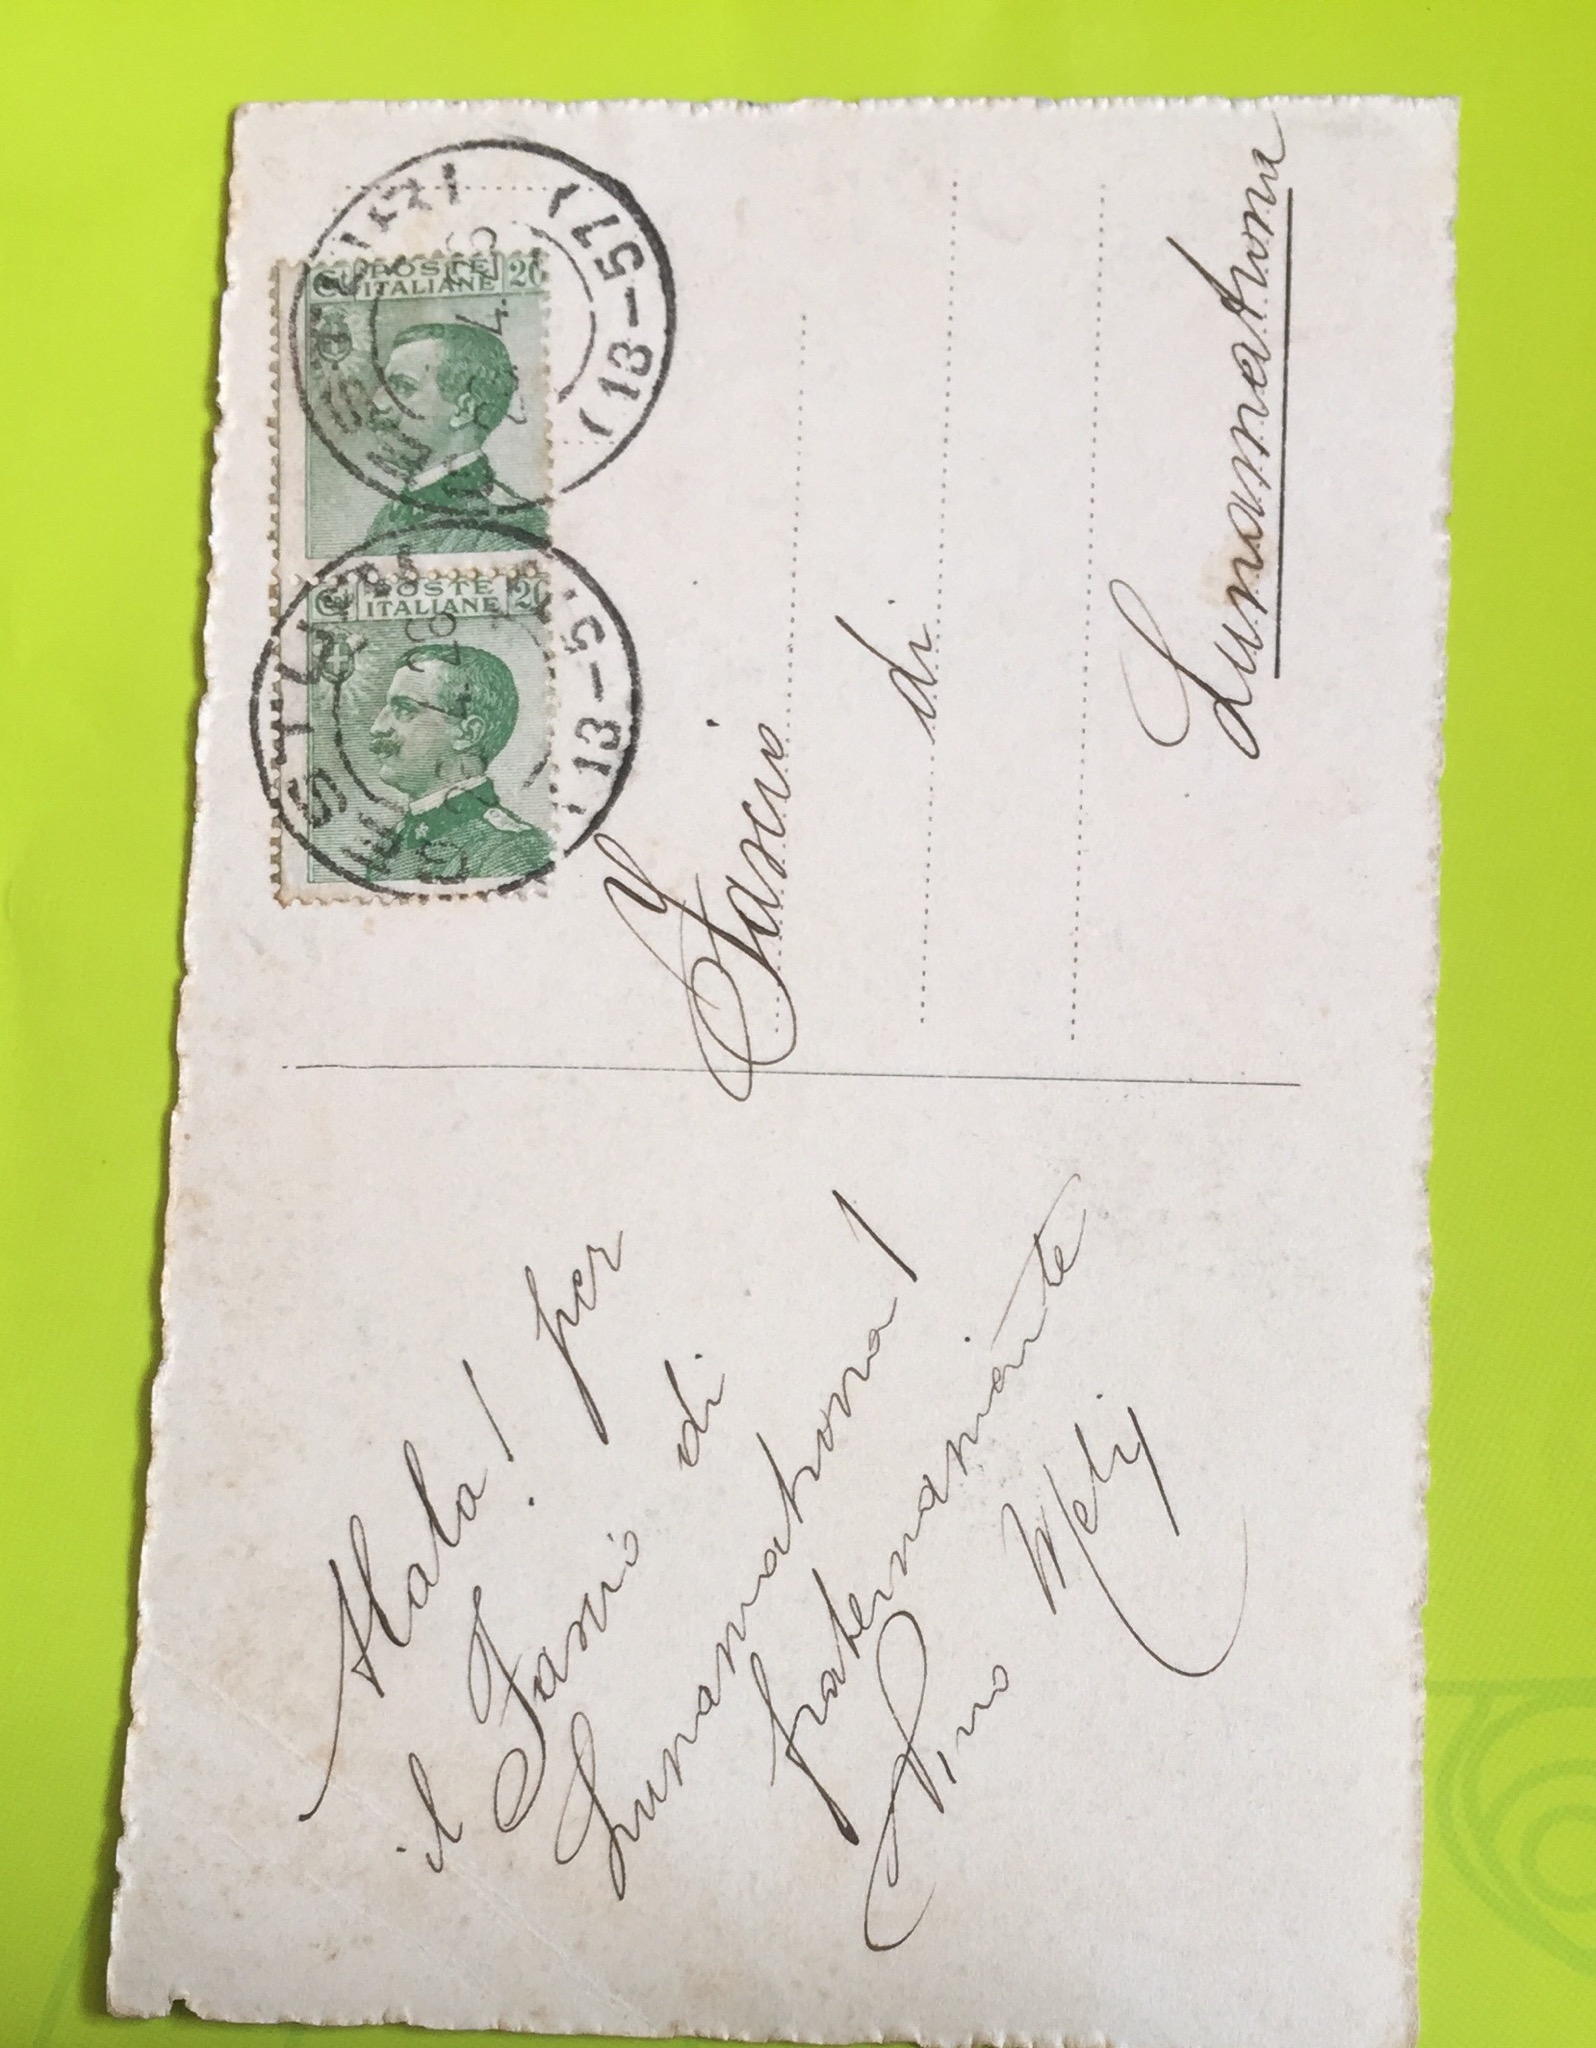 Alala! per
il Fascio di
Lunamatrona!
fraternamente
Pino Melis
POSTE
ITALIANE
20
POSTE
ITALIANE
20
(13-57)
(13-5
Fascio
di
Lunamatrona